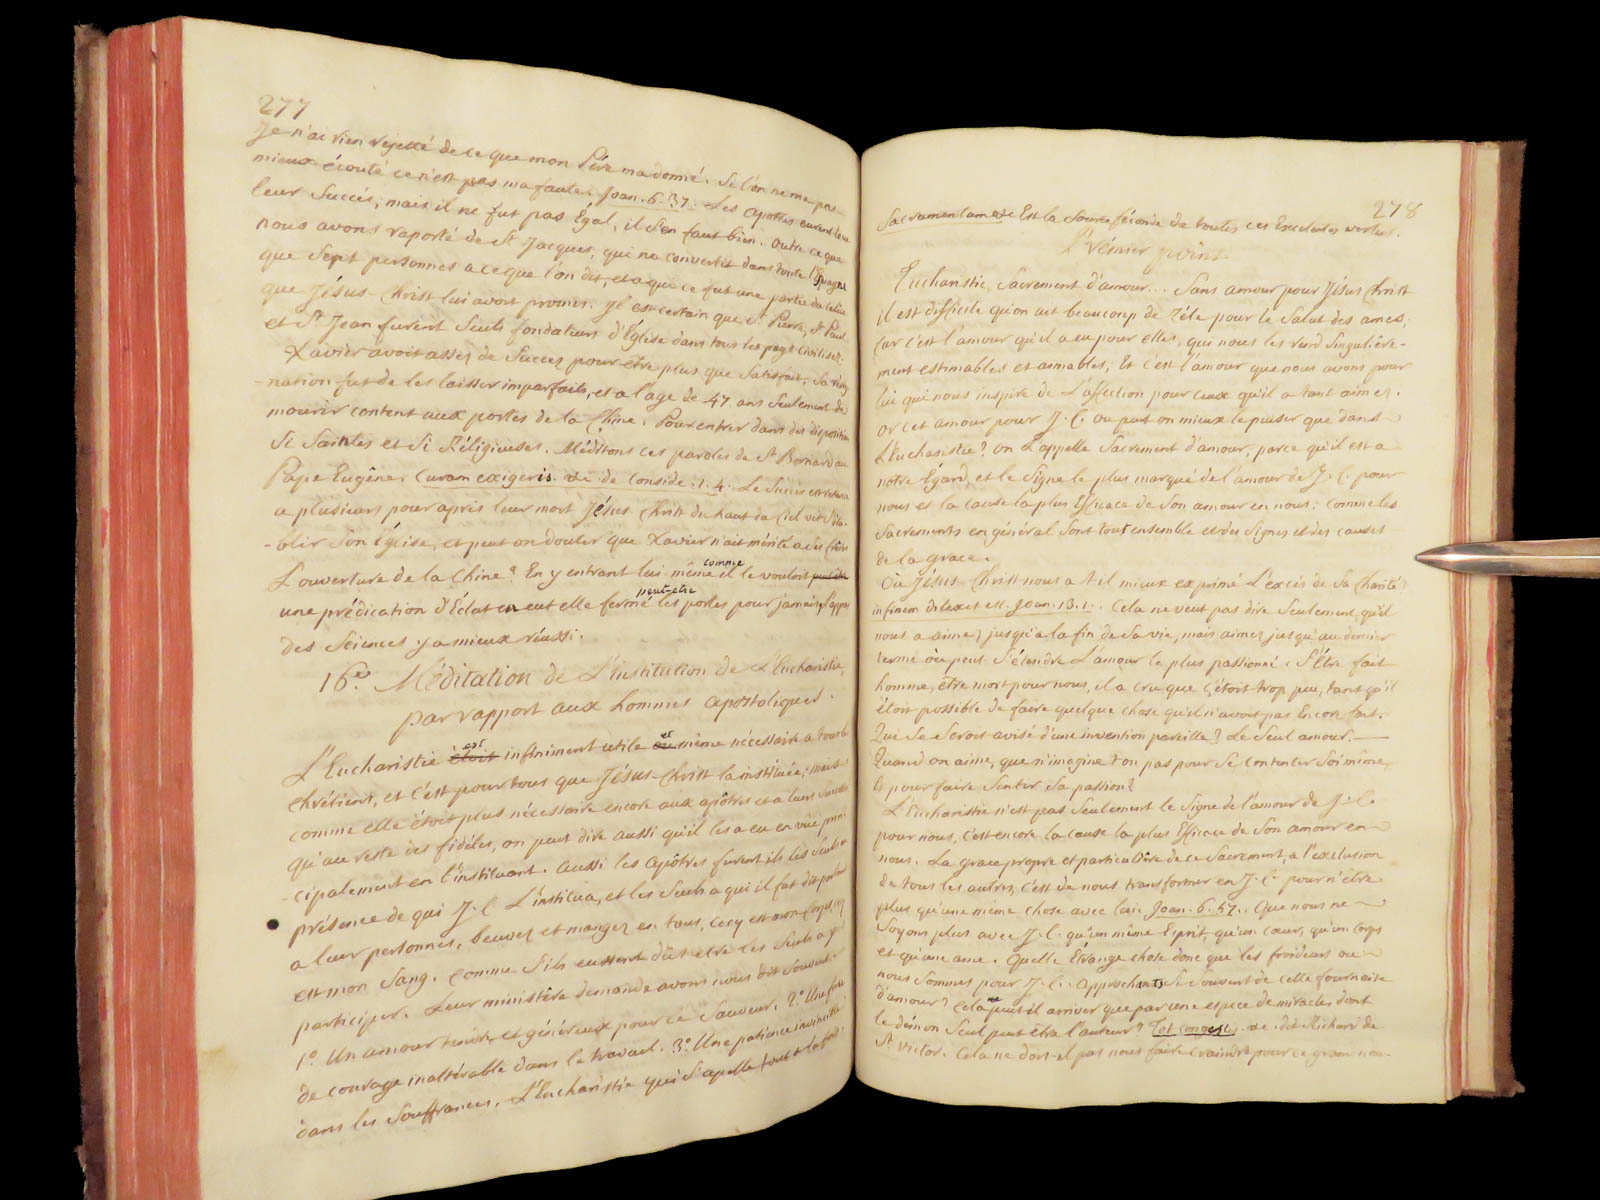 277
Je n'ai rien rejetté de ce que mon Pére ma donné. Si l'on ne ma pas
mieux écouté ce n'est pas ma faute. Joan. 6. 37. Les apotres eurent tous
leur Succés, mais il ne fut pas Egal, il s'en faut bien. Outre ce que
nous avons raporté de St Jacques, qui ne convertit dans toute l'Espagne
que Sept personnes a ce que l'on dit, et a qui ce fut une partie du calice
que Jésus-Christ lui avoit promis. Il est certain que St Pierre, St Paul
et St Jean furent Seuls fondateurs d'Eglise dans tous les pays civilisez.
Xavier avoit assez de Succez pour être plus que Satisfait, Sa résig
-nation fut de les laisser imparfaits, et a l'age de 47 ans Seulement de
mourir content aux portes de la Chine. Pour entrer dans des disposition
Si Saintes et Si Réligieuses. Méditons ces paroles de St Bernard au
Pape Eugêne. Curam exigeris. &c de Conside. 1. 4. Le Succès est
a plusieurs pour aprés leur mort Jésus-Christ du haut du Ciel vit S'éta-
-blir Son Église, et peut on douter que Xavier n'ait mérité a Ses fréres
L'ouverture de la Chine? En y entrant lui même comme il le vouloit
une prédication d'Eclat en eut elle fermé peut-etre les portes pour jamais, l'appas
des Sciences y a mieux réussi.
16e. Méditation de L'Institution de L'Eucharistie,
par rapport aux hommes apostoliques.
L'Eucharistie étoit est infiniment utile ou et même nécessaire a tous les
chrétiens, et c'est pour tous que Jésus-Christ la instituée; mais
comme elle étoit plus nécessaire encore aux apôtres et a leurs
qu'au reste des fidéles, on peut dire aussi qu'il les a eu en vûe prin
-cipalement en l'instituant. Aussi les apôtres furent ils les seuls en
présence de qui J. C. L'institua, et les Seuls a qui il fut dit
a leur personnes, beuvez et mangez en tous, cecy est mon Corps, cecy
est mon Sang. Comme S'ils eussent dût etre les Seuls a y
participer. Leur ministêre demande avons nous dit Souvent.
1°. Un amour tendre, et généreux pour le Sauveur. 2.° Une force
de courage inaltérable dans le travail. 3.° Une patience invincible
dans les Souffrances. L'Eucharistie qui S'apelle tout a la fois.
278
Sacramentum &c Est la Source féconde de toutes ces Excelentes vertus.
Prémier point
Eucharistie, Sacrement d'amour... Sans amour pour Jésus Christ
il est difficile qu'on ait beaucoup de Zéle pour le Salut des ames;
Car c'est l'amour qu'il a eu pour elles, qui nous les rend Singuliêre-
ment estimables et aimables, Et c'est l'amour que nous avons pour
lui qui nous inspire de L'affection pour ceux qu'il a tant aimez.
Or cet amour pour J. C. ou peut on mieux le puiser que dans
L'Eucharistie? On L'appelle Sacrement d'amour, parce qu'il est a
notre Égard, et le Signe le plus marqué de l'amour de J. C. pour
nous et la cause la plus Efficace de Son amour en nous: Comme les
Sacrements en général Sont tout ensemble et des Signes et des causes
de la grace.
Où Jésus-Christ nous a t il mieux exprimé L'excès de Sa Charité?
in finem dilexit eos. Joan. 13. 1. Cela ne veut pas dire Seulement, qu'il
nous a aimez jusqu'a la fin de Sa vie, mais aimez jusqu'au dernier
terme où peut S'étendre L'amour le plus passionné. S'Être fait
homme, être mort pour nous, il a cru que c'étoit trop peu, tant qu'il
étoit possible de faire quelque chose qu'il n'avoit pas Encore fait.
Qui Se Seroit avisé d'une invention pareille? Le Seul amour.
Quand on aime, que n'imagine t'on pas pour Se contenter Soi même,
Et pour faire Sentir Sa passion?
L'Eucharistie n'est pas Seulement le Signe de l'amour de J. C.
pour nous, c'est encore la cause la plus Efficace de Son amour en
nous. La grace propre et particuliêre de ce Sacrement, a l'exclusion
de tous les autres, c'est de nous transformer en J. C. pour n'être
plus qu'une même chose avec lui. Joan. 6. 57. Que nous ne
Soyons plus avec J. C. qu'un même Esprit, qu'un cœur, qu'un Corps
et qu'une ame. Quelle Étrange chose donc que les froideurs ou
nous Sommes pour J. C. Approchants Si Souvent de cette fournaise
d'amour? Cela ne peut il arriver que par une espece de miracles dont
le démon Seul peut être l'auteur? Tot congestis &c. dit Richard de
St Victor. Cela ne doit-il pas nous faire craindre pour ce grand nom-